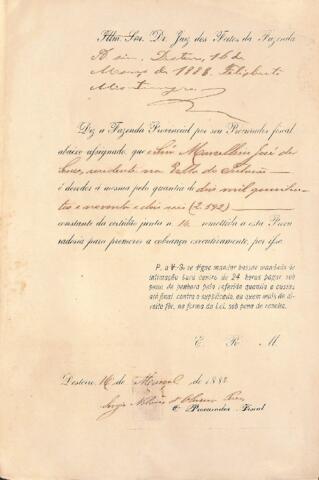 Illm. Snr. Dr. Juiz dos Feitos da Fazenda
A sim, Desterro, 16 de
Março de 1883. Felisberto
Diz a Fazenda Provincial por seu Procurador fiscal
abaixo assignado, que Marcellino José da
residente na
é devedor á mesma pela quantia de dois mil quinhen-
tos e noventa e dois reis (2.592)
constante da certidão junta n. 16 remettida a esta Procu
radoria para promover a cobrança executivamente, por isso
P. a V. S. se digne mandar passar mandado de
intimação para dentro de 24 horas pagar sob
pena de penhora pela referida quantia e custas
até final contra o supplicado, ou quem mais de di-
reito for, na forma da Lei, sob pena de revelia.
E. R. M.
Desterro, 16 de Março de 188
O Procurador Fiscal